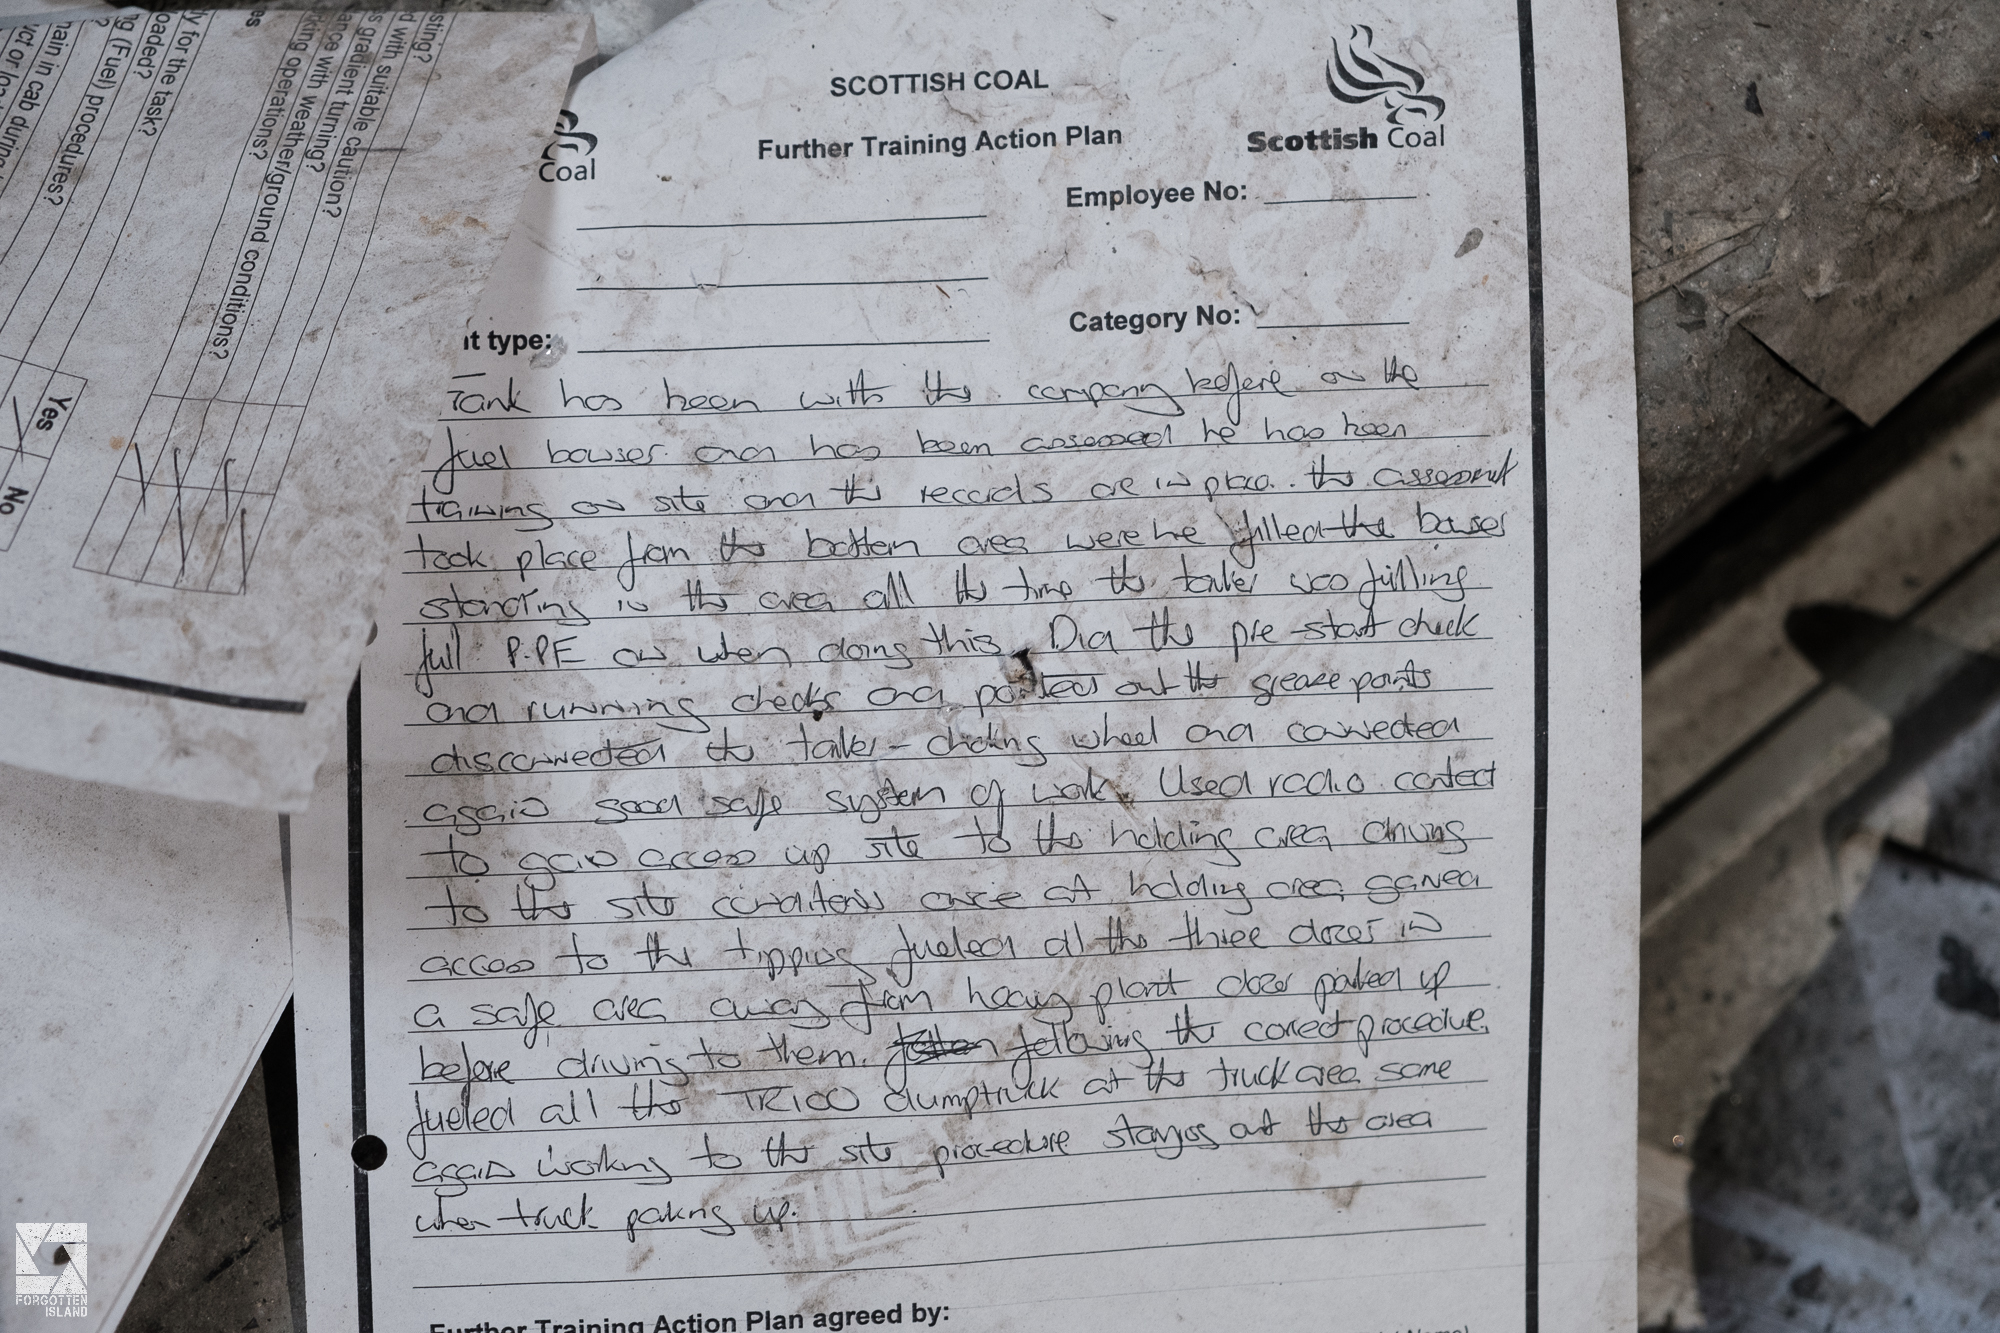 sting?
d with suitable caution?
s gradient turning?
ance with weather/ground conditions?
king operations?
es
y for the task?
oaded?
ng (Fuel) procedures?
main in cab during
Yes
No
SCOTTISH COAL
Further Training Action Plan
Scottish Coal
Coal
Employee No:
Category No:
t type:
Tank has been with the company before on the
fuel bowser and has been assessed he has been
training on site and the records are in place. the assesment
took place from the bottem area were he filled the bowser
standing in the area all the time the tanker was fulling
full P.PE on when doing this. Did the pre-start check
and running checks and pointed out the grease points
disconnected the tanker - chcking wheel and connected
again good safe system of work. Used radio contect
to gain access up site to the holding area driving
to the site conditions once at holding area gained
access to the tipping fueled all the three dozes in
a safe area away from heavy plant dozer parked up
before driving to them. following the correct procedure.
fueled all the TR100 dumptruck at the truck area same
again working to the site procedure staying out the area
when truck parking up.
Further Training Action Plan agreed by:
FORGOTTEN
ISLAND